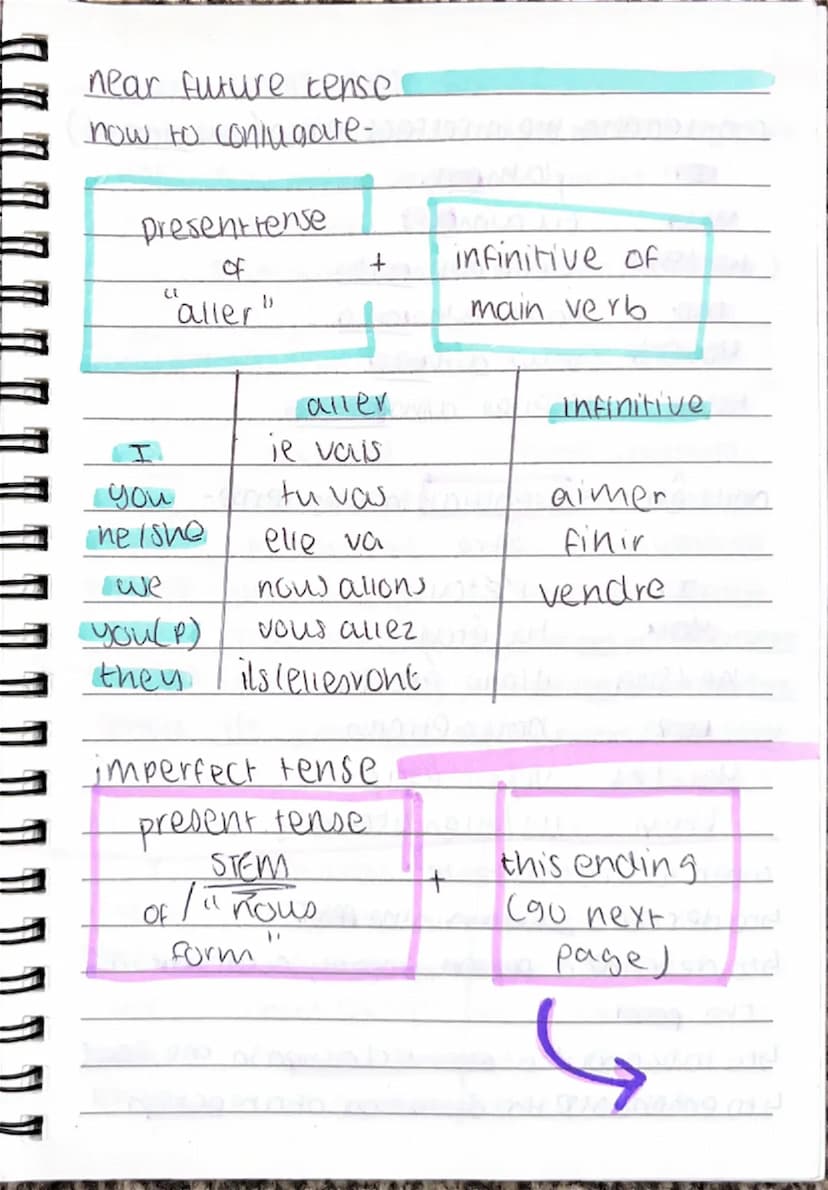 near future tense
how to conjugate-
present tense
of
"aller"
+
infinitive of
main verb
aller infinitive
I je vais
you tu vas aimer
he/she elle va finir
we nous allons vendre
you(p) vous allez
they ils(elles)vont
imperfect tense
present tense
STEM
of / "nous
form"
+
this ending
(go next
page)